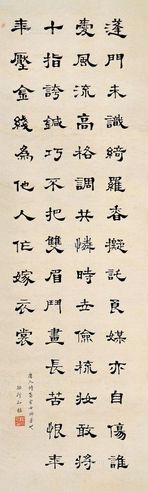 蓬門未識綺羅香擬託良媒亦自傷誰
愛風流高格調共憐時世儉梳妝敢將
十指誇鍼巧不把雙眉鬥畫長苦恨年
年壓金綫為他人作嫁衣裳